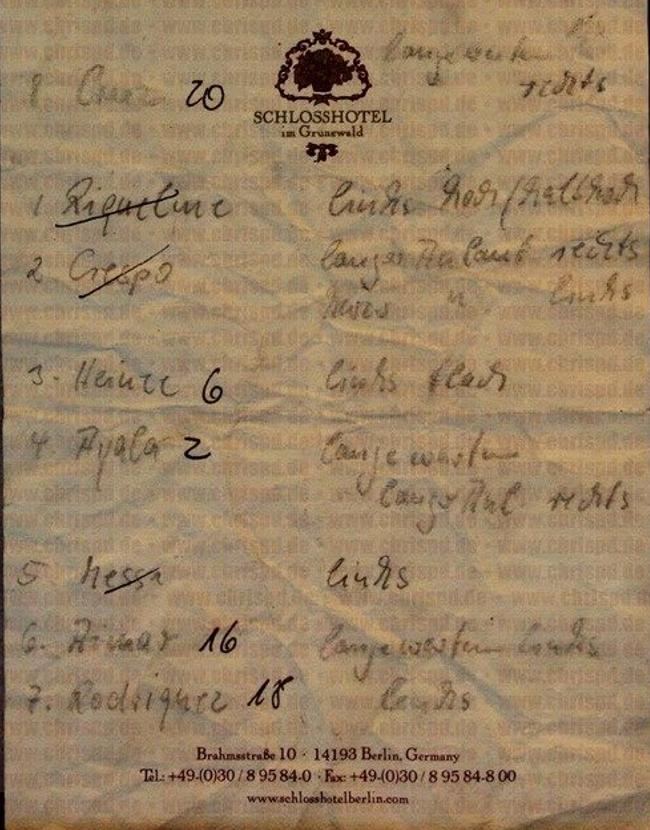 lange warten
8 Cruz 20
rechts
SCHLOSSHOTEL
im Grunewald
1 Riquelme links hoch/halbhoch
2 Crespo langer Anlauf rechts
" links
3. Heinze 6 links flach
4. Ayala 2 lange warten
langer Anl. rechts
5 Messi links
6. Aimar 16 lange warten links
7. Rodriguez 18 links
Brahmsstraße 10 · 14193 Berlin, Germany
Tel.: +49-(0)30 / 8 95 84-0 · Fax: +49-(0)30 / 8 95 84-8 00
www.schlosshotelberlin.com